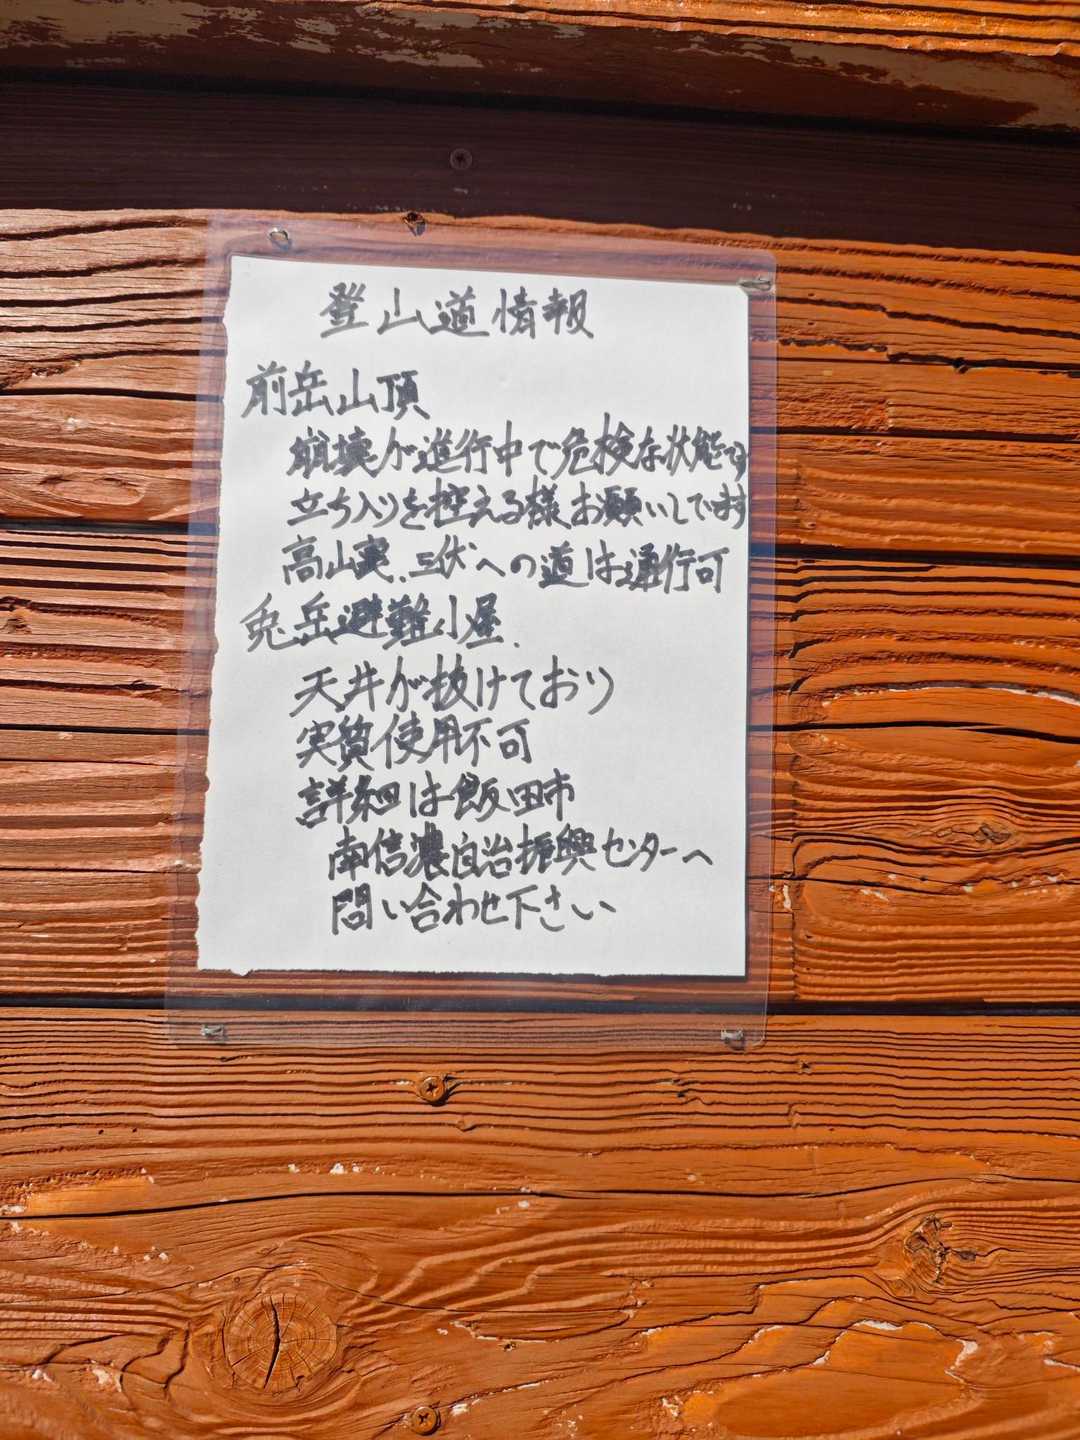 登山道情報
前岳山頂
崩壊が進行中で危険な状態です
立ち入りを控える様お願いしています
高山裏、三伏への道は通行可
兎岳避難小屋.
天井が抜けており
実質使用不可
詳細は飯田市
南信濃自治振興センターへ
問い合わせ下さい